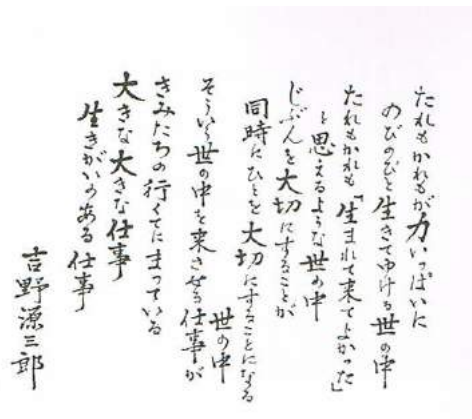 たれもかれもが力いっぱいに
のびのびと生きてゆける世の中
たれもかれも「生まれて来てよかった」
と思えるような世の中
じぶんを大切にすることが
同時にひとを大切にすることになる
世の中
そういう世の中を来させる仕事が
きみたちの行くてにまっている
大きな大きな仕事
生きがいのある仕事
吉野源三郎